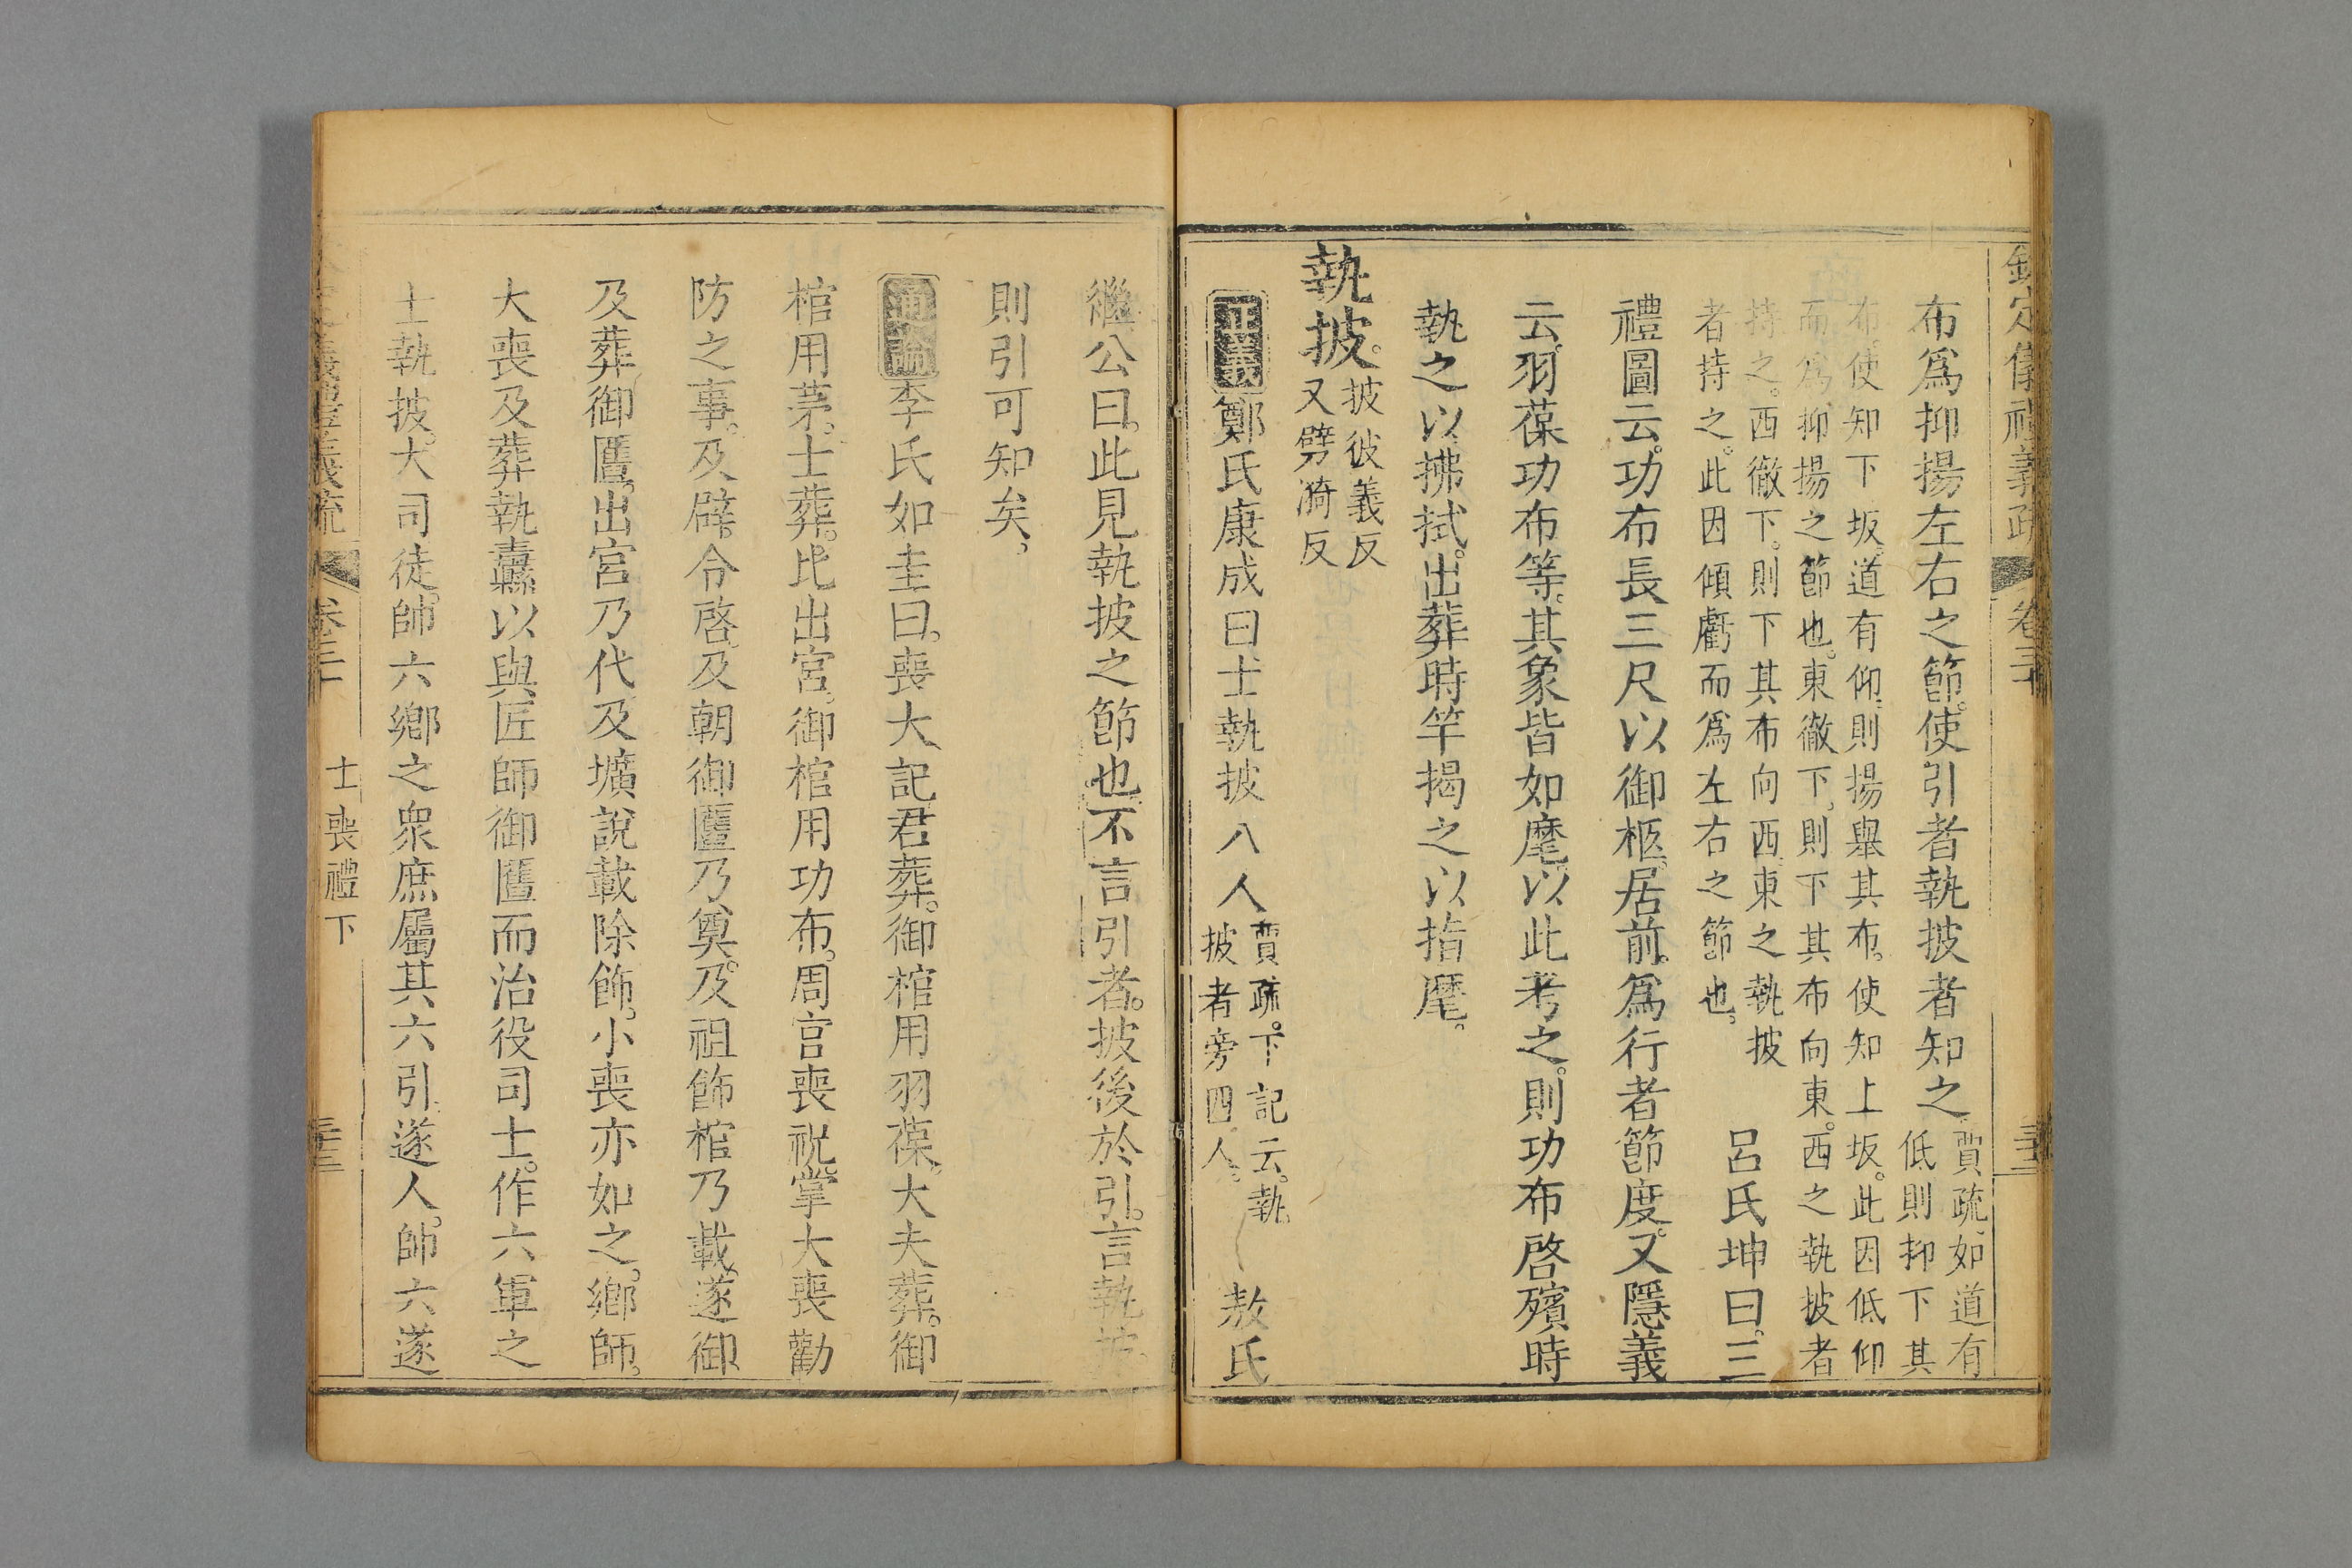 欽定儀禮義疏 卷三十
布爲抑揚左右之節。使引者執披者知之。賈疏。如道有低則抑下其
布。使知下坂。道有仰。則揚舉其布。使知上坂。此因低仰
而爲抑揚之節也。東徹下。則下其布向東。西之執披者
持之。西徹下。則下其布向西。東之執披
者持之。此因傾虧而爲左右之節也。
呂氏坤曰。三
禮圖云。功布長三尺以御柩。居前。爲行者節度。又隱義
云。羽葆功布等。其象皆如麾。以此考之。則功布啓殯時
執之以拂拭。出葬時竿揭之以指麾。
執披。披彼義反
又劈漪反
正義鄭氏康成曰士執披八人賈疏。下記云。執
披者旁四人。
敖氏
繼公曰。此見執披之節也不言引者。披後於引。言執披。
則引可知矣。
通論李氏如圭曰。喪大記君葬。御棺用羽葆。大夫葬。御
棺用茅。士葬。比出宮。御棺用功布。周官喪祝。掌大喪勸
防之事。及辟。令啓。及朝御匶乃奠。及祖飾棺乃載。遂御
及葬御匶。出宮乃代及壙說載除飾。小喪亦如之。鄉師。
大喪及葬執纛以與匠師御匶而治役司士。作六軍之
士執披。大司徒。帥六鄉之衆庶屬其六引。遂人。帥六遂
卷三十 士喪禮下